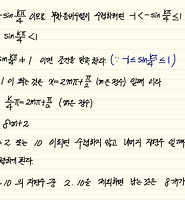 -sin kπ/4 이므로 무한등비수열이 수렴하려면 -1<-sin kπ/4≤1
sin kπ/4<1
sin kπ/4≠1 이면 조건을 만족한다 (∵ -1≤sin kπ/4≤1)
1 이 되는 것은 x=2mπ+π/2 (m은 정수) 일때 이다
k/4π=2mπ+π/2 (m은 정수)
8m+2
=2 또는 10 이외면 수렴하지 않고 나머지 정수 일때
렴하게 된다
10 의 자연수 중 2, 10을 제외하면 남는 것은 8개가